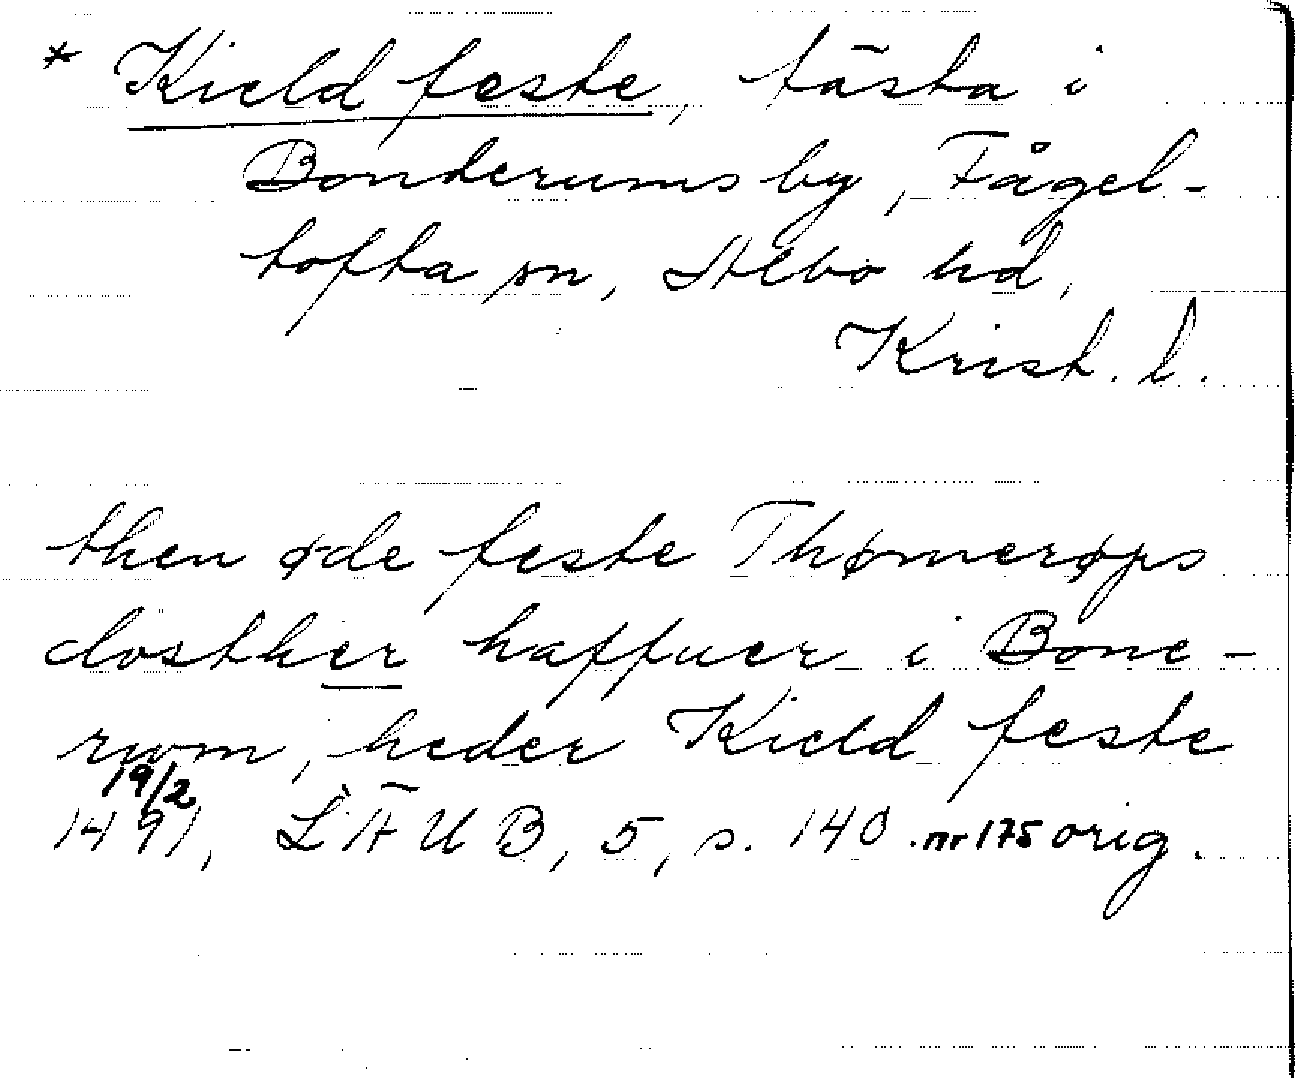 * Kield feste, fästa i
Bonderums by, Fågel-
tofta sn, Albo hd,
Krist. l.
then øde feste Thømerøps
closther haffuer i Bone-
rwm, heder Kield feste
19/2
1491, LÄUB, 5, s. 140 . nr 175 orig.